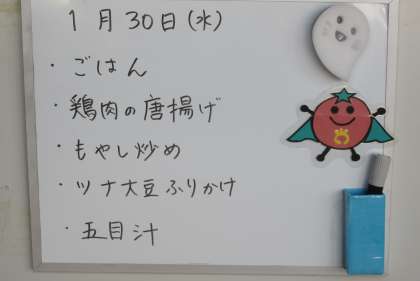 1月30日(水)
・ごはん
・鶏肉の唐揚げ
・もやし炒め
・ツナ大豆ふりかけ
・五目汁